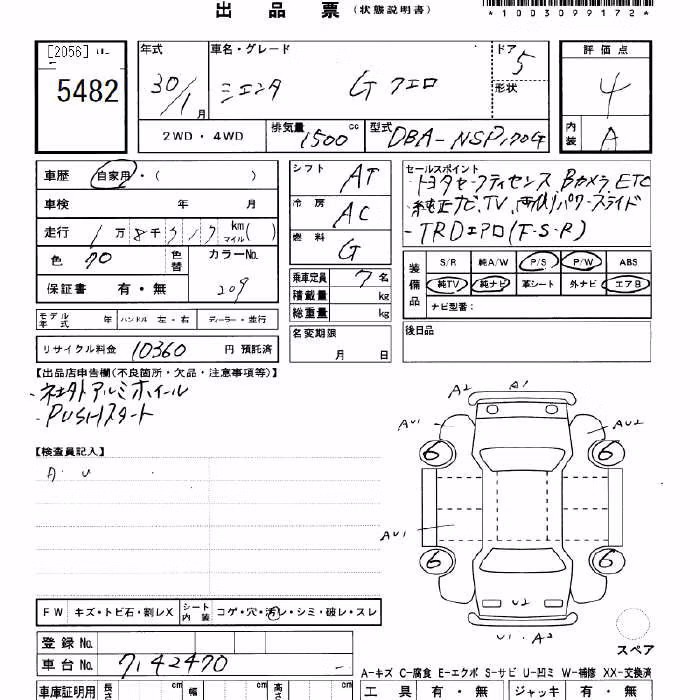 出 品 票 (状態説明書)
*1003099172*
[2056]
5482
年式 30/1月
車名・グレード シエンタ G クエロ
ドア 5
形状
評価点 4
内装 A
2WD・4WD
排気量 1500 cc
型式 DBA-NSP170G
車歴 自家用・( )
車検 年 月
走行 1万8千 km マイル( )
色 クロ 色替
カラーNo. 209
保証書 有・無
モデル年式 年
ハンドル 左・右
ディーラー・並行
リサイクル料金 10360 円 預託済
シフト AT
冷房 AC
燃料 G
乗車定員 7 名
積載量 kg
総重量 kg
名変期限 月 日
セールスポイント
・トヨタセーフティセンス、Bカメラ、ETC
・純正ナビ、TV、両側パワースライド
・TRDエアロ(F・S・R)
装備品
S/R 純A/W P/S P/W ABS
純TV 純ナビ 革シート 外ナビ エアB
ナビ型番:
後日品
【出品店申告欄(不良箇所・欠品・注意事項等)】
・社外アルミホイール
・PUSHスタート
【検査員記入】
A・U
A2 A1
AU1 AU2
6 6
AU1
6 6
U2
U1・A2
スペア
FW キズ・トビ石・割レX
シート内装 コゲ・穴・汚レ・シミ・破レ・スレ
登録No.
車台No. 7142470
A-キズ C-腐食 E-エクボ S-サビ U-凹ミ W-補修 XX-交換済
車庫証明用 長さ cm 幅 cm 高 cm
工具 有・無 ジャッキ 有・無